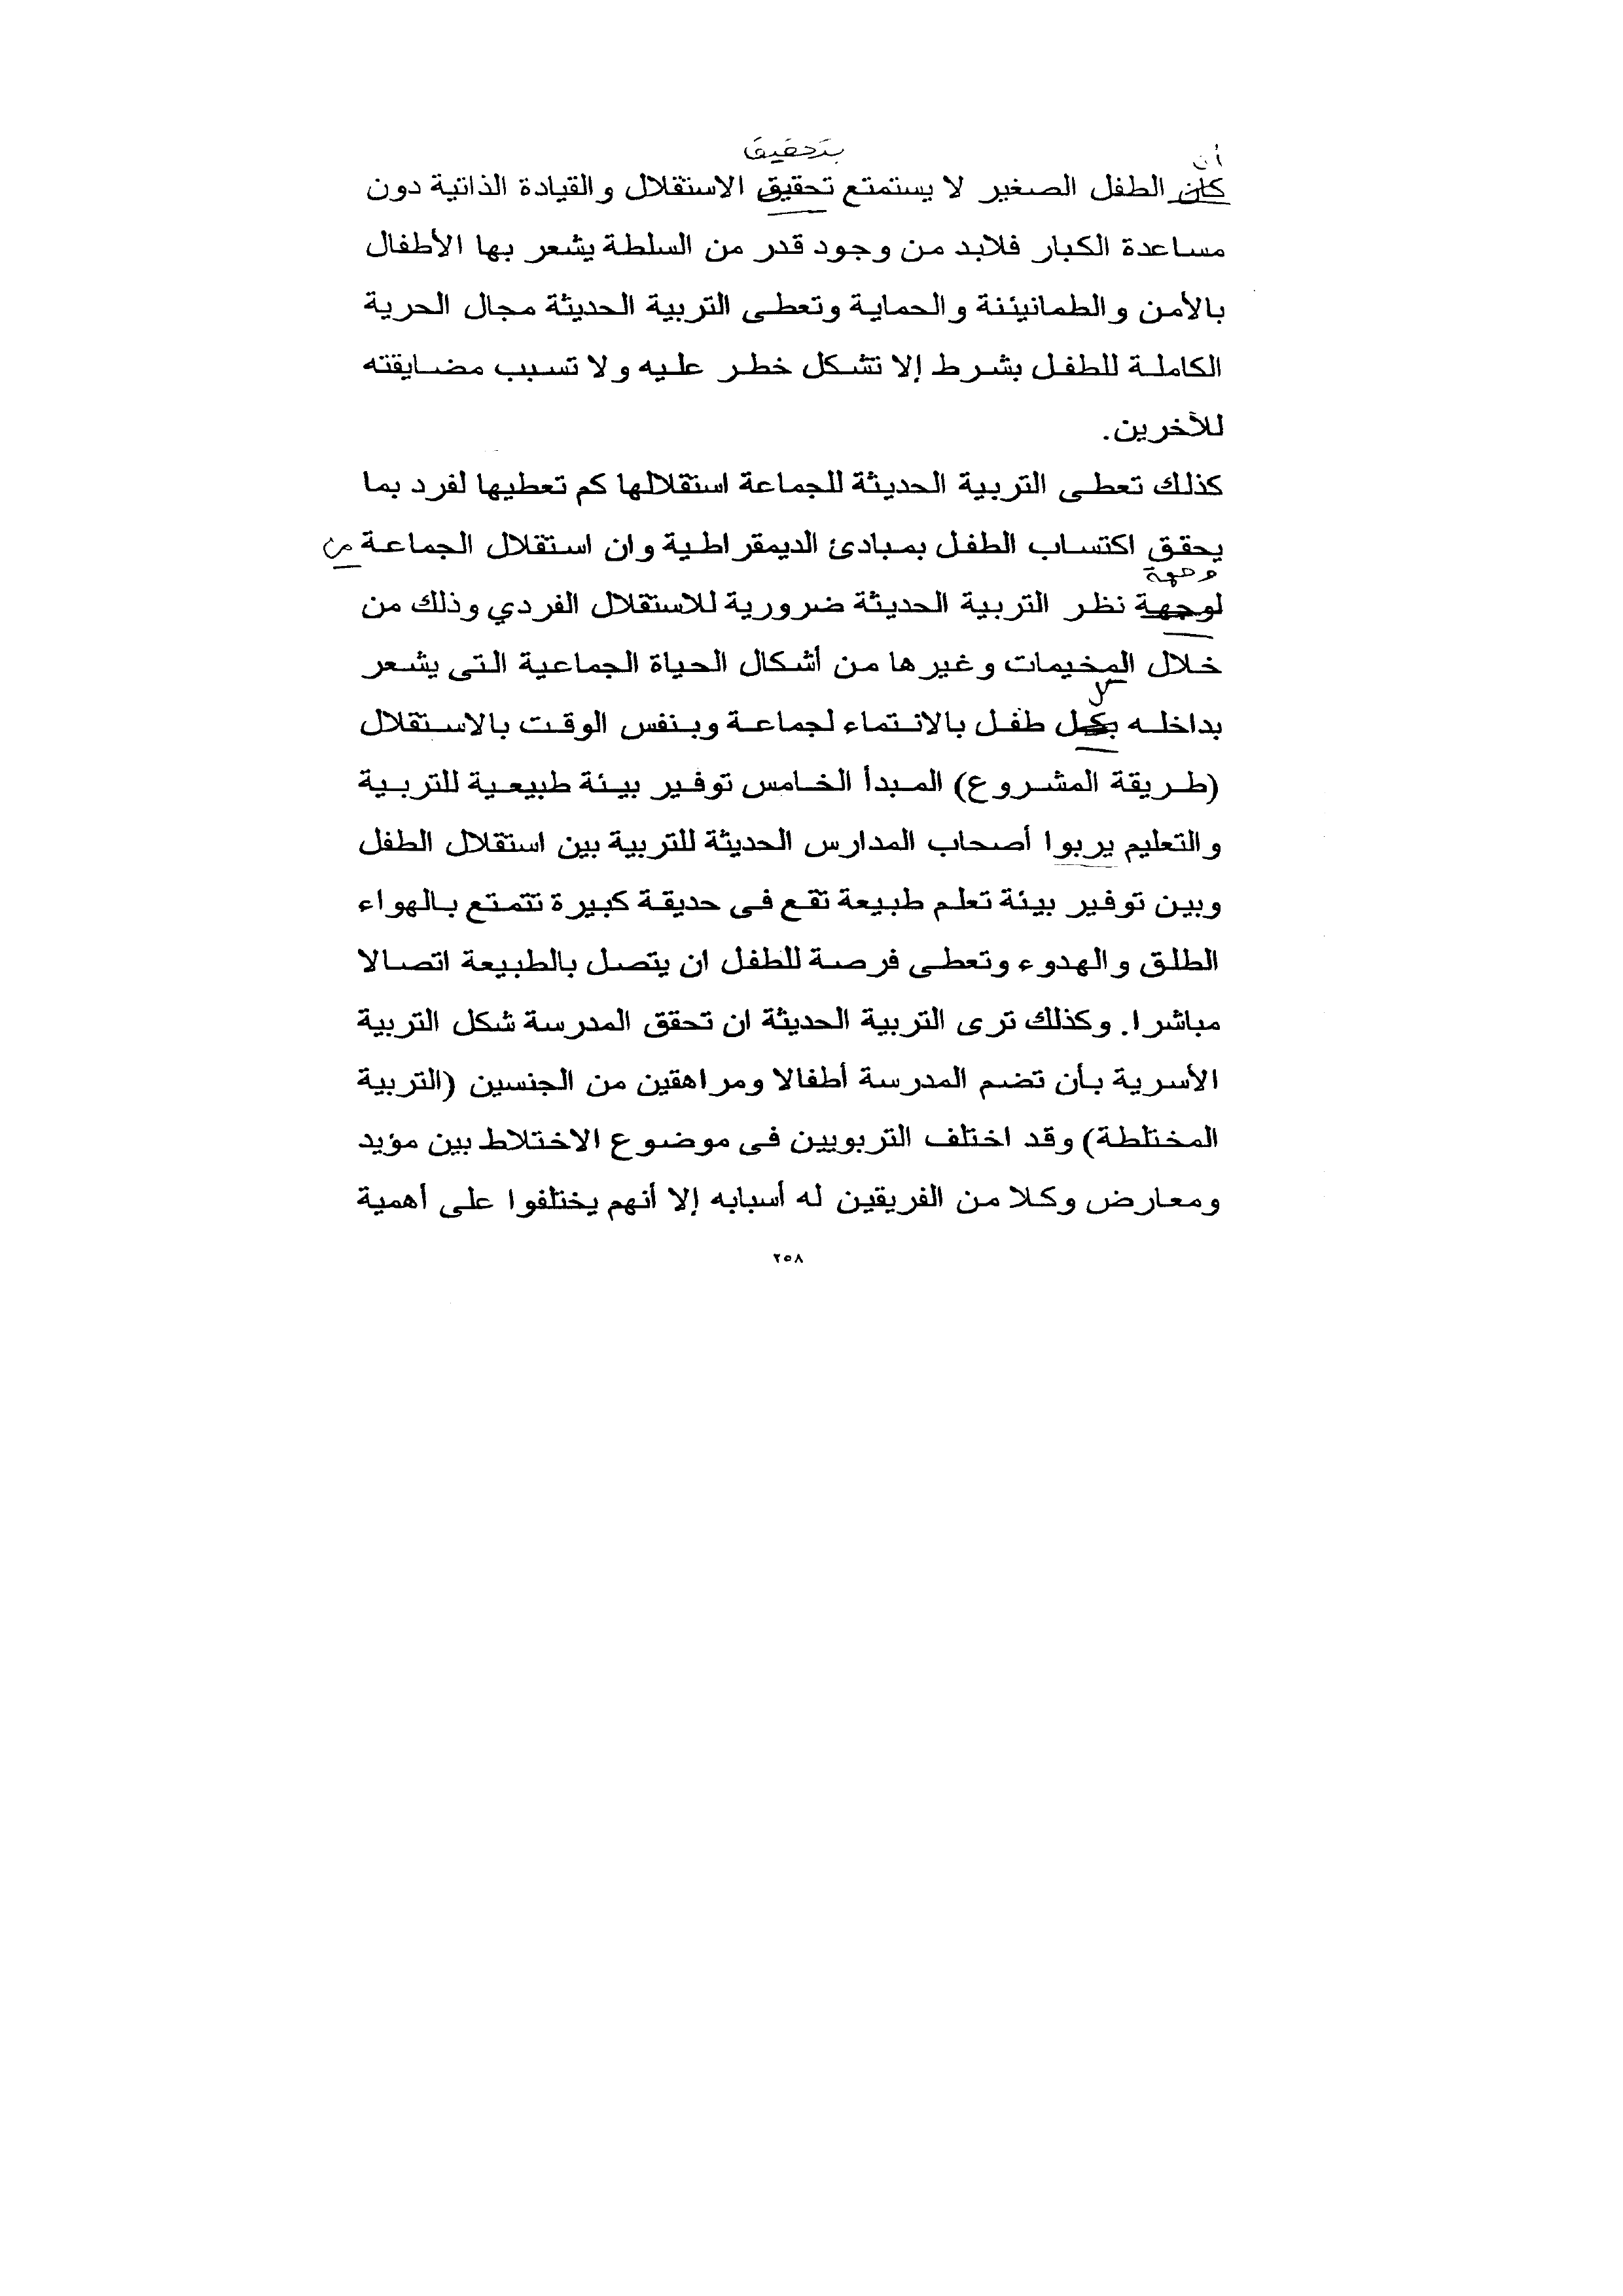 بتحقيق أن
كان الطفل الصغير لا يستمتع تحقيق الاستقلال والقيادة الذاتية دون
مساعدة الكبار فلابد من وجود قدر من السلطة يشعر بها الأطفال
بالأمن والطمانيئنة والحماية وتعطى التربية الحديثة مجال الحرية
الكاملة للطفل بشرط إلا تشكل خطر عليه ولا تسبب مضايقته
للآخرين.
كذلك تعطى التربية الحديثة للجماعة استقلالها كم تعطيها لفرد بما
يحقق اكتساب الطفل بمبادئ الديمقراطية وان استقلال الجماعة من
وجهة
لوجهة نظر التربية الحديثة ضرورية للاستقلال الفردي وذلك من
خلال المخيمات وغيرها من أشكال الحياة الجماعية التى يشعر
كل
بداخله بكل طفل بالانتماء لجماعة وبنفس الوقت بالاستقلال
(طريقة المشروع) المبدأ الخامس توفير بيئة طبيعية للتربية
والتعليم يربوا أصحاب المدارس الحديثة للتربية بين استقلال الطفل
وبين توفير بيئة تعلم طبيعة تقع فى حديقة كبيرة تتمتع بالهواء
الطلق والهدوء وتعطى فرصة للطفل ان يتصل بالطبيعة اتصالا
مباشرا. وكذلك ترى التربية الحديثة ان تحقق المدرسة شكل التربية
الأسرية بأن تضم المدرسة أطفالا ومراهقين من الجنسين (التربية
المختلطة) وقد اختلف التربويين فى موضوع الاختلاط بين مؤيد
ومعارض وكلا من الفريقين له أسبابه إلا أنهم يختلفوا على أهمية
٢٥٨